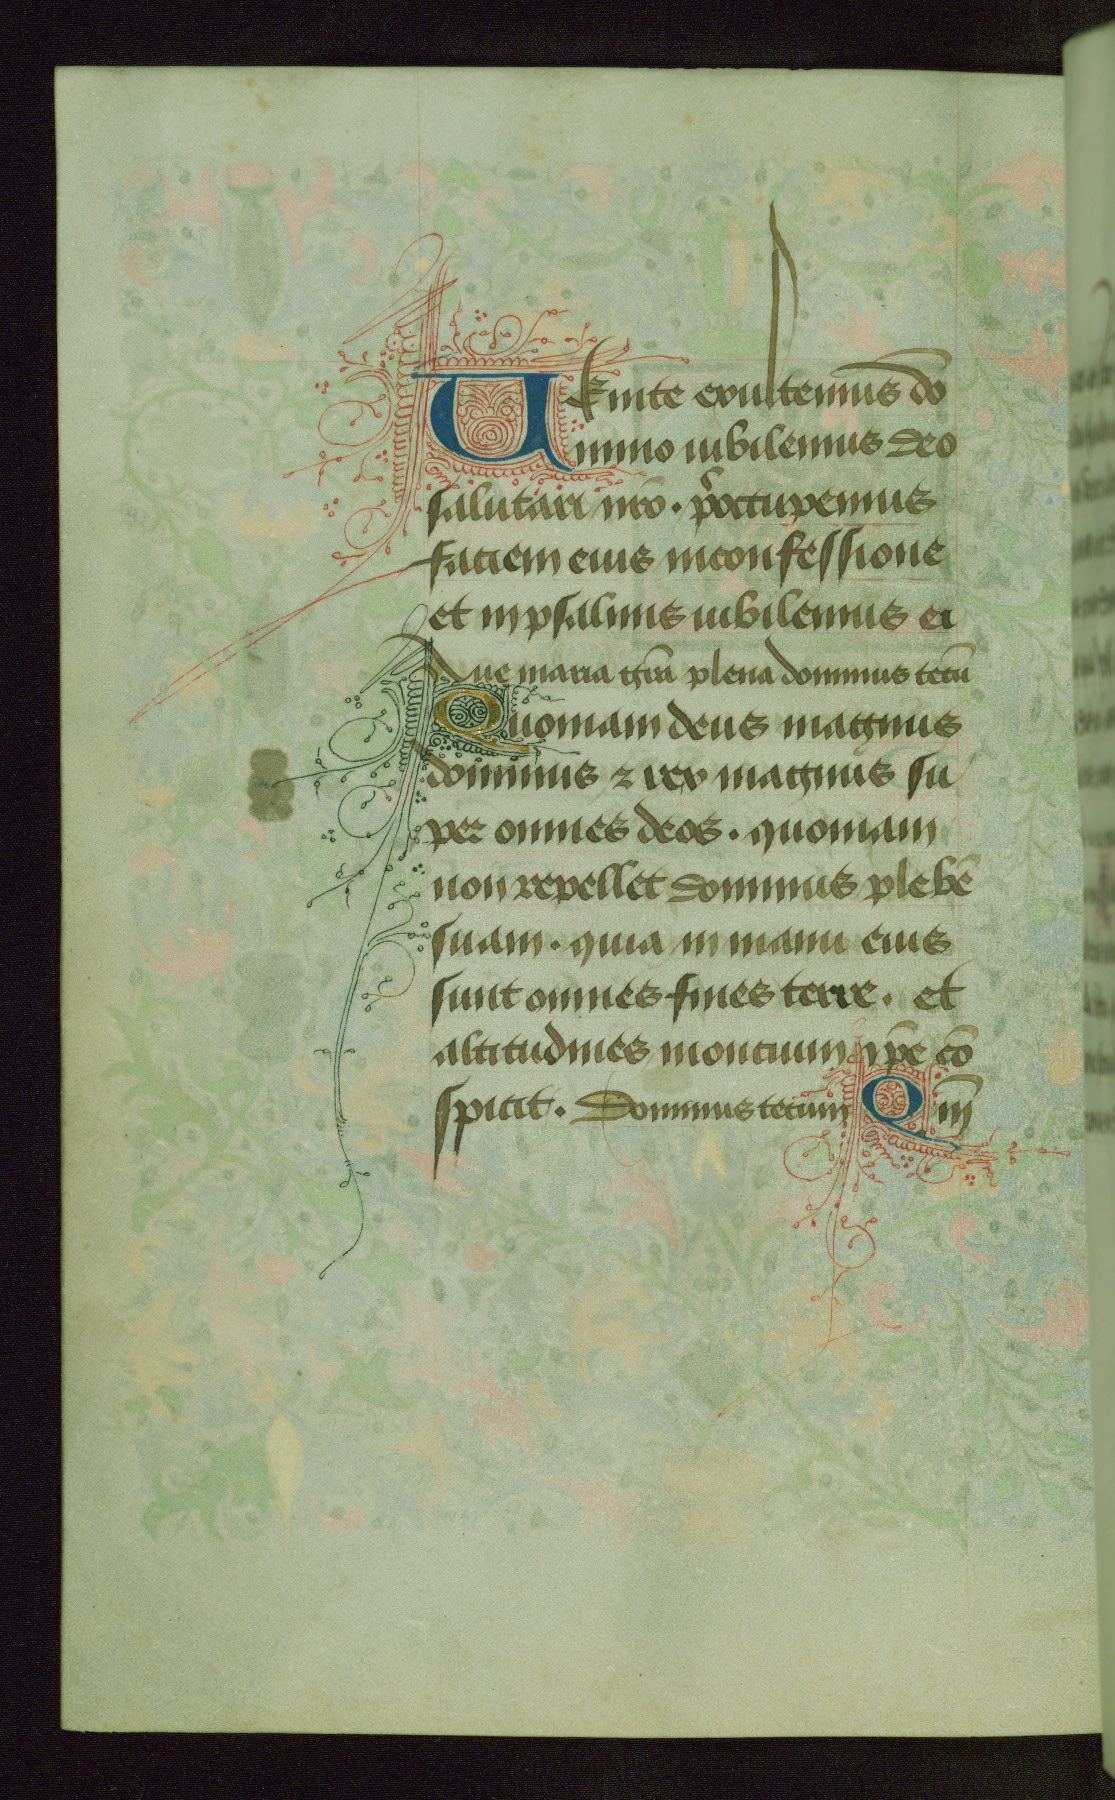 Uenite exultemus do
mino iubilemus deo
salutari nr̄o . p̄occupemus
faciem eius in confessione
et in psalmis iubilemus ei
Aue maria gr̄a plena dominus tecū
Quoniam deus magnus
dominus ⁊ rex magnus su
per omnes deos . quoniam
non repellet dominus plebē
suam . quia in manu eius
sunt omnes fines terre . et
altitudines montium ip̄e cō
spicit . Dominus tecum Qm̄